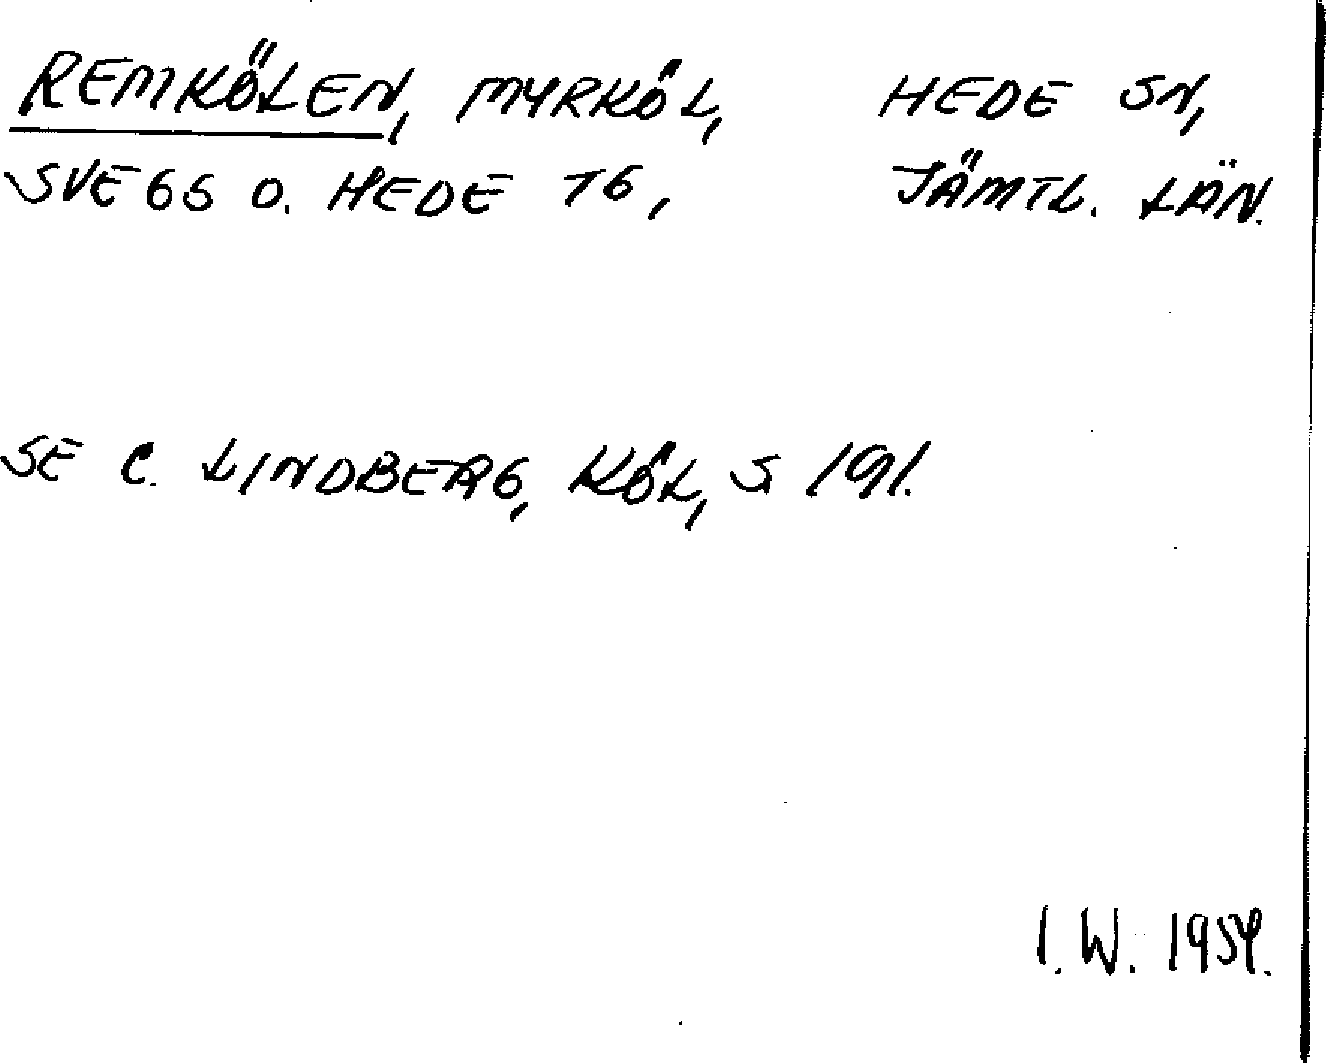 REMKÖLEN, MYRKÖL, HEDE SN,
SVEGS O. HEDE TG, JÄMTL. LÄN.
SE C. LINDBERG, KÖL, S 191.
I. W. 1959.